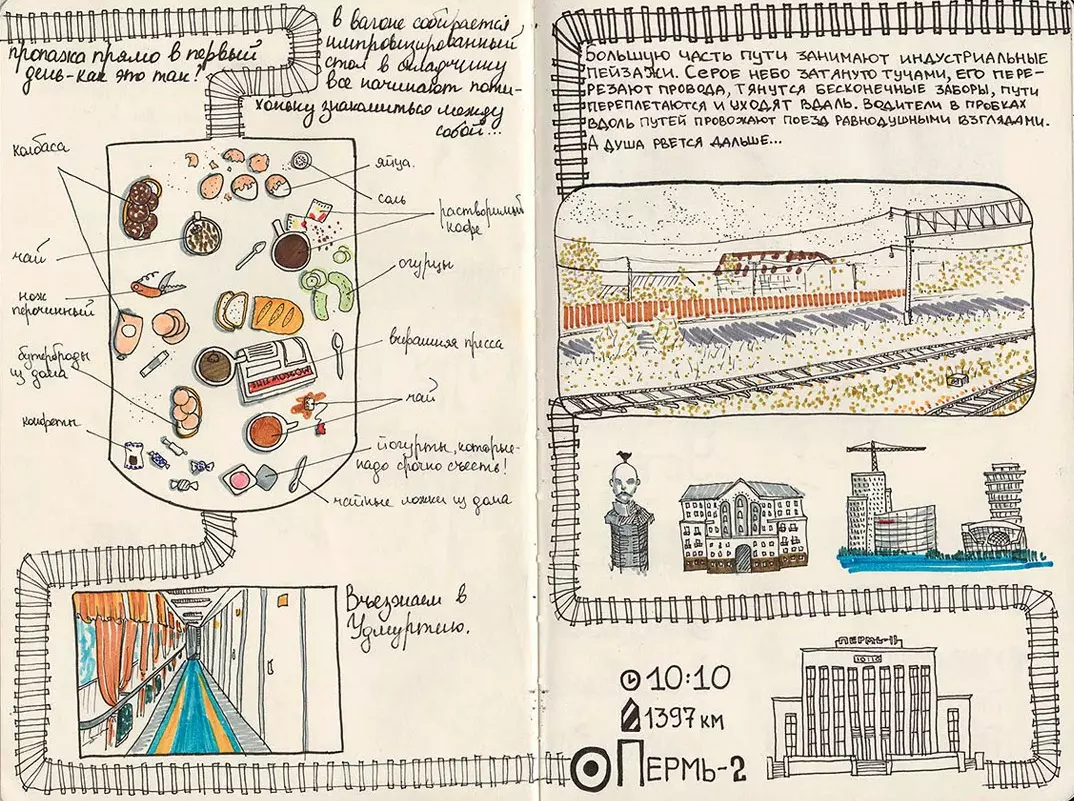 пропажа прямо в первый
день-как это так!
в вагоне собирается
импровизированный
стол в складчину
все начинают поти-
хоньку знакомиться между
собой...
колбаса
чай
нож
перочинный
бутерброды
из дома
конфеты
яйца
соль
растворимый
кофе
огурцы
вчерашняя пресса
чай
йогурты, которые
надо срочно съесть!
чайные ложки из дома
Въезжаем в
Удмуртию.
Большую часть пути занимают индустриальные
пейзажи. Серое небо затянуто тучами, его пере-
резают провода, тянутся бесконечные заборы, пути
переплетаются и уходят вдаль. Водители в пробках
вдоль путей провожают поезд равнодушными взглядами.
А душа рвется дальше...
10:10
1397 км
Пермь-2
ПЕРМЬ-II
10:10